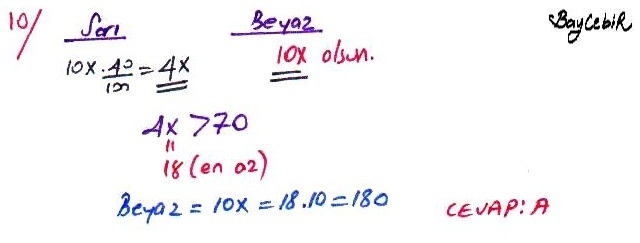 10/ Sarı Beyaz BayCebiR
10x . 40/100 = 4x 10x olsun.
4x > 70
18 (en az)
Beyaz = 10x = 18.10 = 180 CEVAP: A